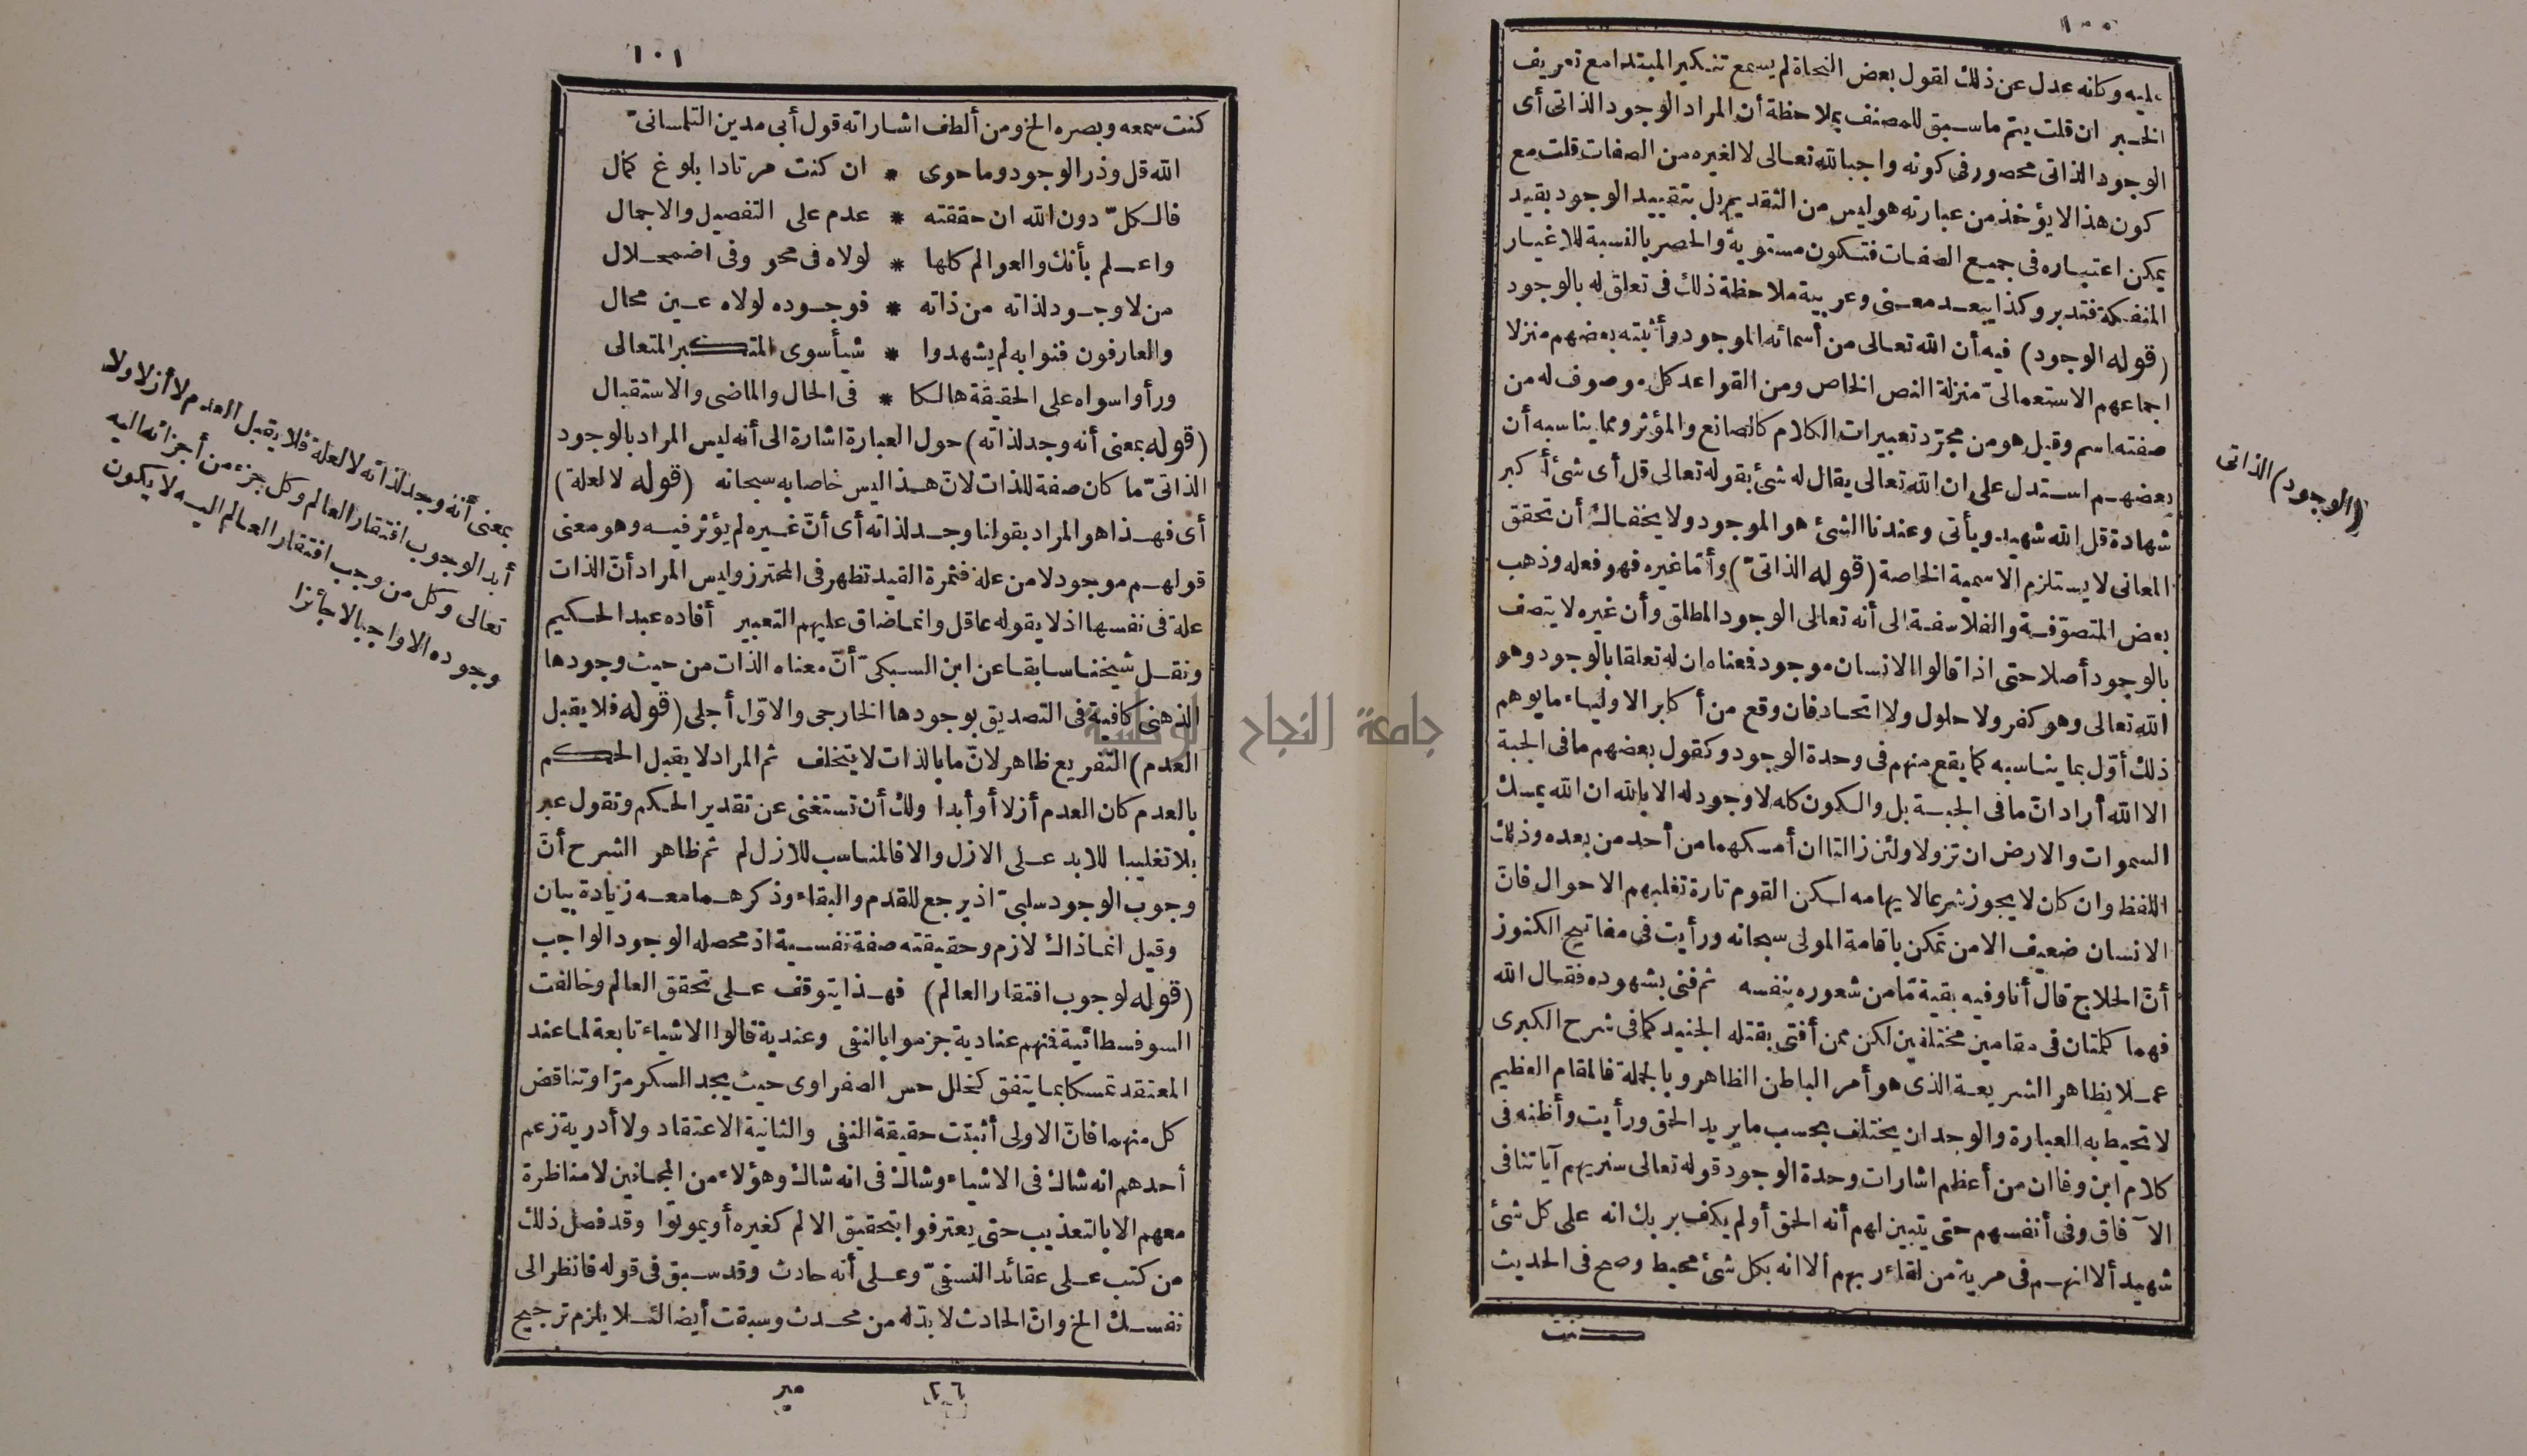 ١٠٠
عليه وكانه عدل عن ذلك لقول بعض النحاة لم يسمع تنكير المبتدا مع تعريف
الخبر ان قلت يتم ماسبق للمصنف بملاحظة أن المراد الوجود الذاتى أى
الوجود الذاتى محصور فى كونه واجبا لله تعالى لا لغيره من الصفات قلت مع
كون هذا لا يؤخذ من عبارته هو ليس من التقديم بل بتقييد الوجود بقيد
يمكن اعتباره فى جميع الصفات فتكون مستوية والحصر بالنسبة للاغيار
المنفكة فتدبر وكذا يبعد معنى وعربية ملاحظة ذلك فى تعلق له بالوجود
(قوله الوجود) فيه أن الله تعالى من أسمائه الموجود وأثبته بعضهم منزلا
اجماعهم الاستعمالىّ منزلة النص الخاص ومن القواعد كل موصوف له من
صفته اسم وقيل هو من مجرّد تعبيرات الكلام كالصانع والمؤثر ومما يناسبه أن
بعضهم استدل على ان الله تعالى يقال له شئ بقوله تعالى قل أى شئ أكبر
شهادة قل الله شهيد ويأتى وعندنا الشئ هو الموجود ولا يخفاك أن تحقق
المعانى لا يستلزم الاسمية الخاصة (قوله الذاتىّ) وأمّا غيره فهو فعله وذهب
بعض المتصوّفة والفلاسفة الى أنه تعالى الوجود المطلق وأن غيره لا يتصف
بالوجود أصلا حتى اذا قالوا الانسان موجود فمعناه ان له تعلقا بالوجود وهو
الله تعالى وهو كفر ولا حلول ولا اتحاد فان وقع من أكابر الاولياء ما يوهم
ذلك أوّل بما يناسبه كما يقع منهم فى وحدة الوجود وكقول بعضهم ما فى الجبة
الا الله أراد انّ ما فى الجبة بل والكون كله لا وجود له الا بالله ان الله يمسك
السموات والارض ان تزولا ولئن زالتا ان أمسكهما من أحد من بعده وذلك
اللفظ وان كان لا يجوز شرعا لايهامه لكن القوم تارة تغلبهم الاحوال فانّ
الانسان ضعيف الامن تمكن باقامة المولى سبحانه ورأيت فى مفاتيح الكنوز
أنّ الحلاج قال أنا وفيه بقية مّا من شعوره بنفسه ثم فنى بشهوده فقال الله
فهما كلمتان فى مقامين مختلفين لكن ممن أفتى بقتله الجنيد كما فى شرح الكبرى
عملا بظاهر الشريعة الذى هو أمر الباطن الظاهر وبالجملة فالمقام العظيم
لا تحيط به العبارة والوجدان يختلف بحسب ما يريد الحق ورأيت وأظنه فى
كلام ابن وفا ان من أعظم اشارات وحدة الوجود قوله تعالى سنريهم آياتنا فى
الآفاق وفى أنفسهم حتى يتبين لهم أنه الحق أولم يكف بربك انه على كل شئ
شهيد ألا انهم فى مرية من لقاء ربهم ألا انه بكل شئ محيط وصح فى الحديث
كنت
(الوجود) الذاتى
١٠١
كنت سمعه وبصره الخ ومن ألطف اشاراته قول أبى مدين التلمسانىّ
الله قل وذر الوجود وما حوى * ان كنت مرتادا بلوغ كمال
فالكلّ دون الله ان حققته * عدم على التفصيل والاجمال
واعلم بأنك والعوالم كلها * لولاه فى محو وفى اضمحلال
من لا وجود لذاته من ذاته * فوجوده لولاه عين محال
والعارفون فنوا به لم يشهدوا * شيأ سوى المتكبر المتعالى
ورأوا سواه على الحقيقة هالكا * فى الحال والماضى والاستقبال
(قوله بمعنى أنه وجد لذاته) حول العبارة اشارة الى أنه ليس المراد بالوجود
الذاتىّ ما كان صفة للذات لانّ هذا ليس خاصا به سبحانه (قوله لا لعلة)
أى فهذا هو المراد بقولنا وجد لذاته أى أنّ غيره لم يؤثر فيه وهو معنى
قولهم موجود لا من علة فثمرة القيد تظهر فى المحترز وليس المراد أنّ الذات
علة فى نفسها اذ لا يقوله عاقل وانما ضاق عليهم التعبير أفاده عبد الحكيم
ونقل شيخنا سابقا عن ابن السبكىّ أنّ معناه الذات من حيث وجودها
الذهنى كافية فى التصديق بوجودها الخارجى والاوّل أجلى (قوله فلا يقبل
العدم) التفريع ظاهر لانّ ما بالذات لا يتخلف ثم المراد لا يقبل الحكم
بالعدم كان العدم أزلا أو أبدا ولك أن تستغنى عن تقدير الحكم وتقول عبر
بلا تغليبا للابد على الازل والا فالمناسب للازل لم ثم ظاهر الشرح أنّ
وجوب الوجود سلبىّ اذ يرجع للقدم والبقاء وذكرهما معه زيادة بيان
وقيل انما ذاك لازم وحقيقته صفة نفسية اذ محصله الوجود الواجب
(قوله لوجوب افتقار العالم) فهذا يتوقف على تحقق العالم وخالفت
السوفسطائية فمنهم عنادية جزموا بالنفى وعندية قالوا الاشياء تابعة لما عند
المعتقد تمسكا بما يتفق كخلل حس الصفراوى حيث يجد السكر مرّا وتناقض
كل منهما فانّ الاولى أثبتت حقيقة النفى والثانية الاعتقاد ولا أدرية زعم
أحدهم انه شاك فى الاشياء وشاك فى انه شاك وهؤلاء من المجانين لا مناظرة
معهم الا بالتعذيب حتى يعترفوا بتحقيق الالم كغيره أو يموتوا وقد فصل ذلك
من كتب على عقائد النسفىّ وعلى أنه حادث وقد سبق فى قوله فانظر الى
نفسك الخ وانّ الحادث لا بدّ له من محدث وسبقت أيضا لئلا يلزم ترجيح
٢٦
مير
بمعنى أنه وجد لذاته لا لعلة فلا يقبل العدم لا أزلا ولا
أبدا لوجوب افتقار العالم وكل جزء من أجزائه اليه
تعالى وكل من وجب افتقار العالم اليه لا يكون
وجوده الا واجبا لا جائزا
جامعة النجاح الوطنية